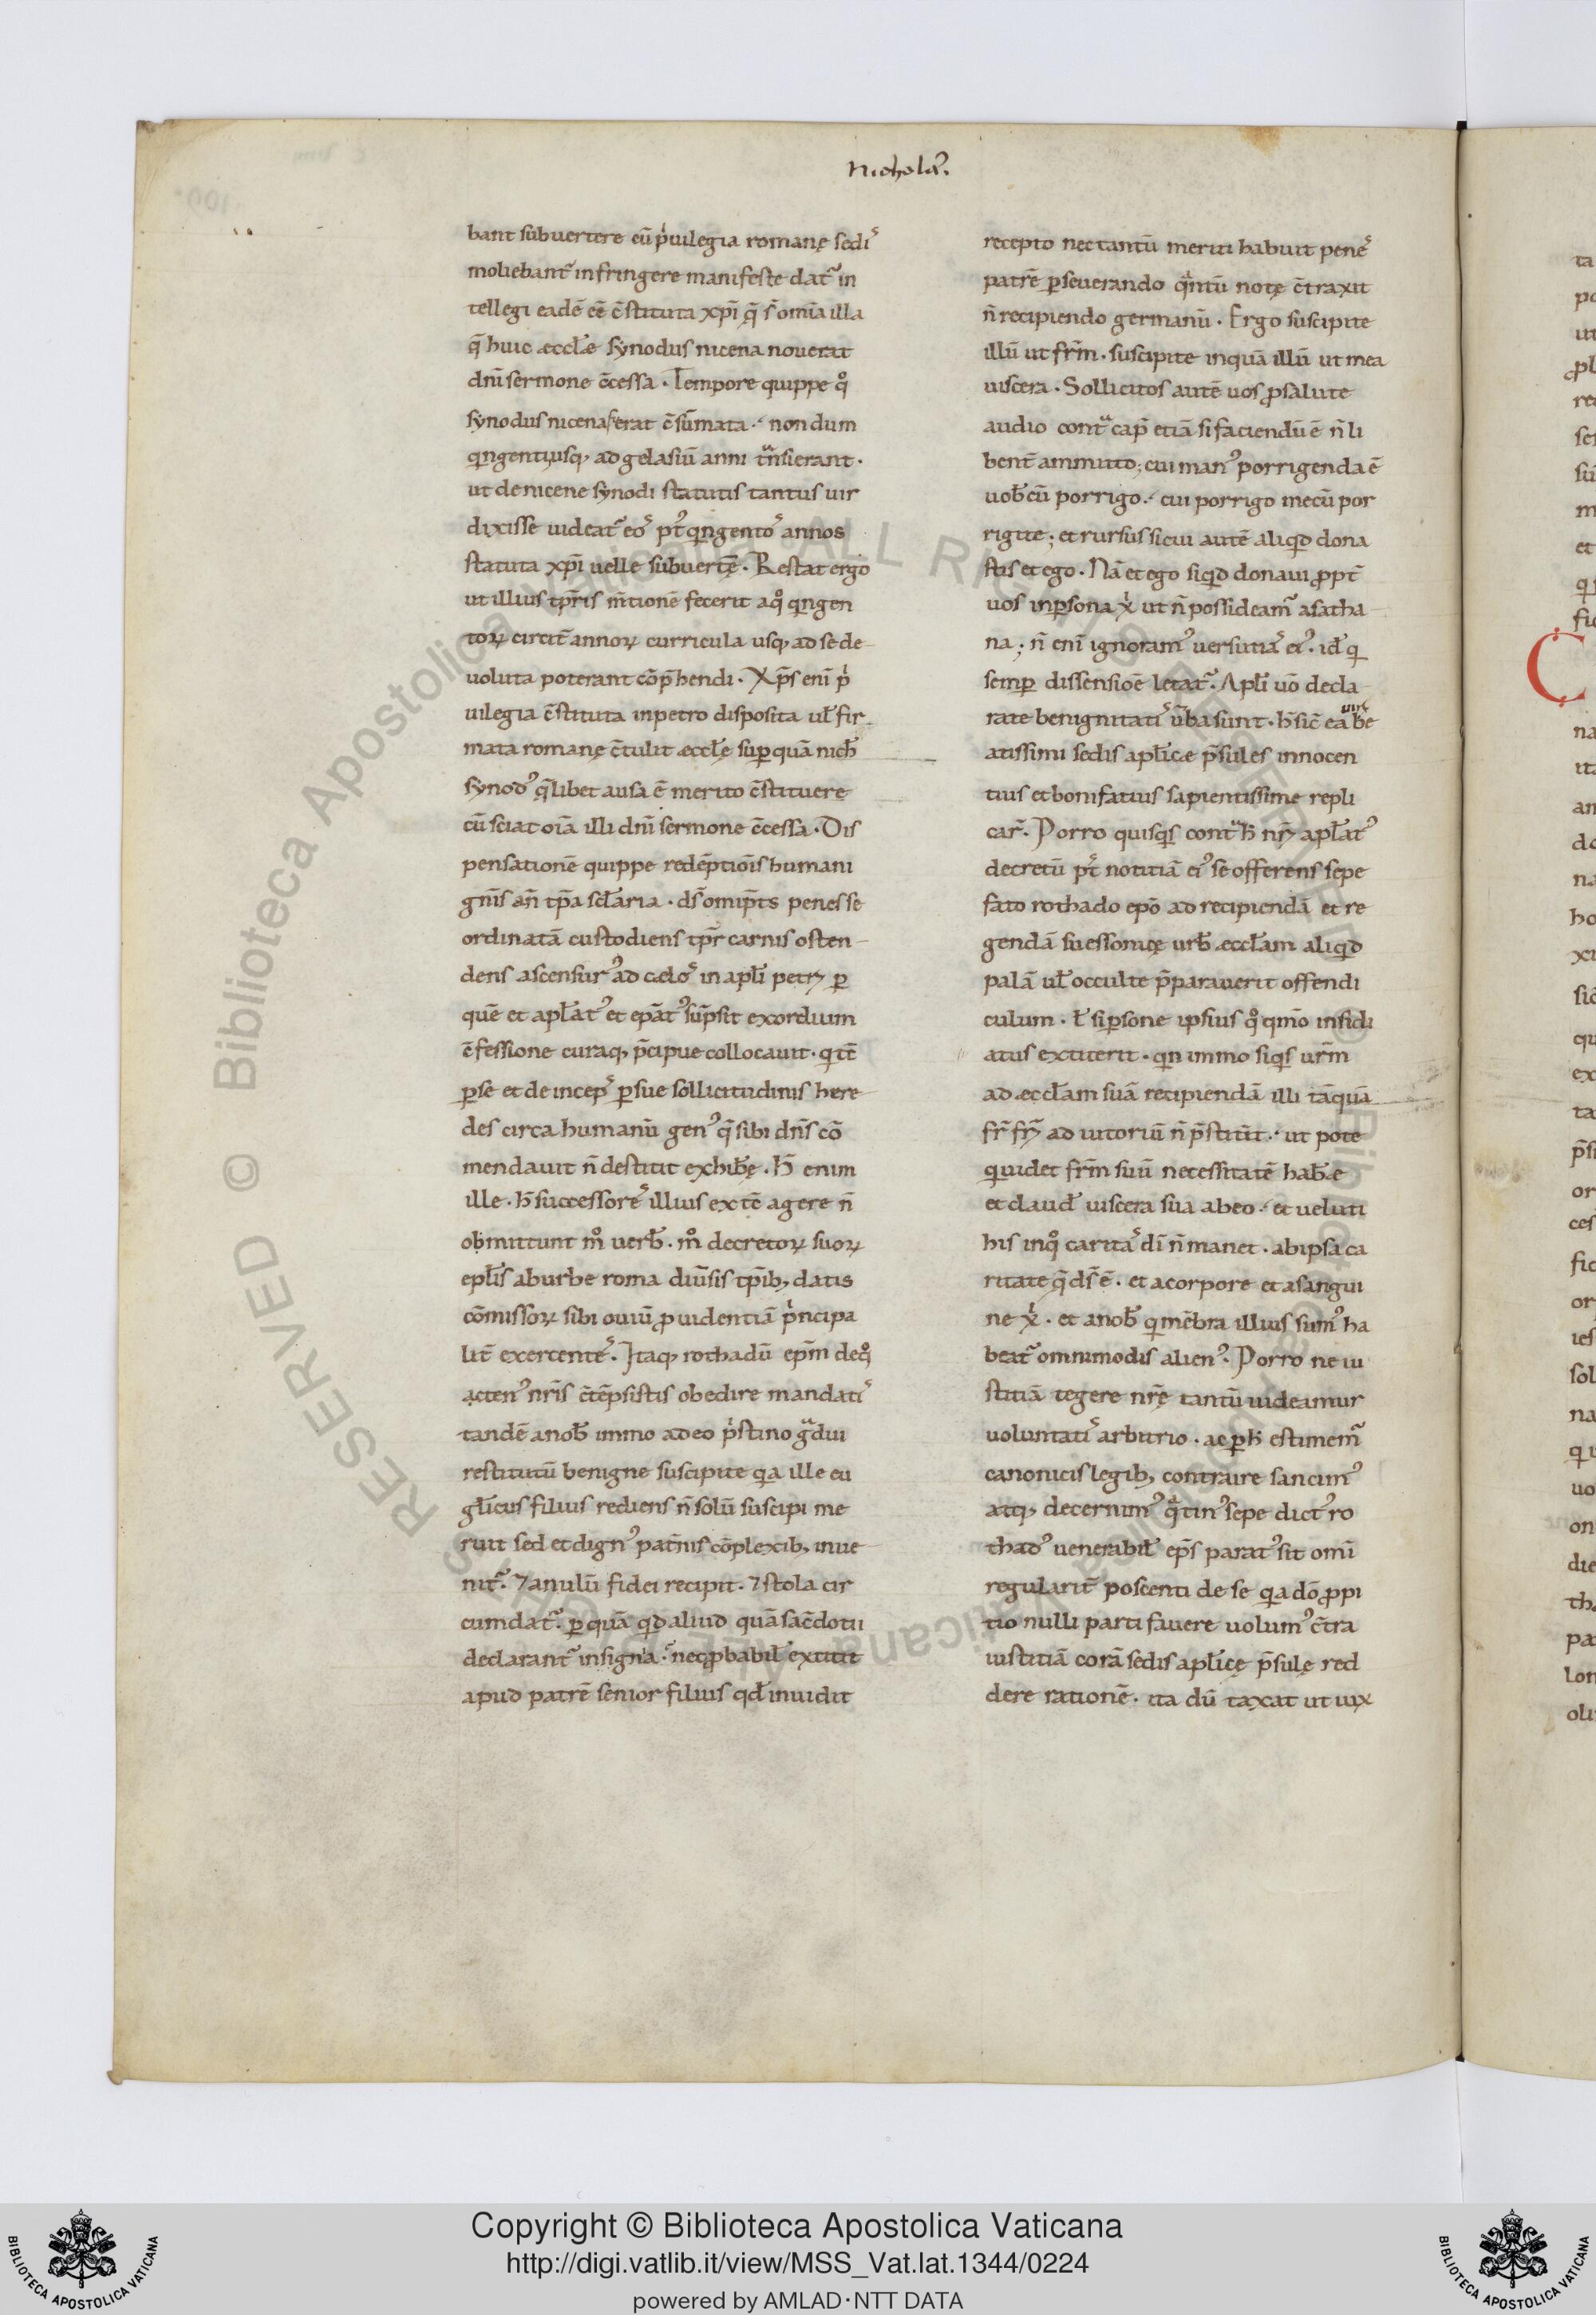 nicholaꝰ.
bant subuertere cū pͥuilegia romanę sediˢ
moliebant᷑ infringere manifeste dat᷑ in
tellegi eadē eē c̄stituta xp̄i q̄ s̄ omīa illa
q̄ huic æccl̄e synodus nicena nouerat
dn̄i sermone c̄cessa. Tempore quippe qͦ
synodus nicena ferat c̄sūmata. non dum
qingenti usq; ad gelasiū anni tᵃnsierant.
ut de nicene synodi statutis tantus uir
dixisse uideat᷑ eoˢ ptꝰ qingentoˢ annos
statuta xp̄i uelle subuert̄ę. Restat ergo
ut illius tp̄ris m̄tionē fecerit a qͦ qingen
toꝝ circit̄ annoꝝ curricula usq; ad se de
uoluta poterant cōp̄hendi. Xp̄s enī pͥ
uilegia c̄stituta in petro disposita ul̄ fir
mata romanę c̄tulit æccl̄ę sup̱ quā nich̄
synodꝰ q̄libet ausa ē merito c̄stituere
cū sciat oīa illi dn̄i sermone c̄cessa. Dis
pensationē quippe redēptiōis humani
gn̄is an̄ tp̄a scl̄aria. ds̄ omip̄ts penes se
ordinatā custodiens tp̄r carnis osten
dens ascensurꝰ ad cæloˢ in apl̄i petri ꝑ
quē et apl̄atꝰ et ep̄atꝰ sūpsit exordium
c̄fessione curaq; p̄cipue collocauit. q tc̄
ꝑ se et deincepˢ ꝑ sue sollicitudinis here
des circa humanū genꝰ q̄ sibi dn̄s cō
mendauit n̄ destitit exhib̄ę. H̄ enim
ille. h̄ successoreˢ illius ex tc̄ agere n̄
obmittunt mͦ uerb̄. mͦ decretoꝝ suoꝝ
epl̄is ab urbe roma diūsis tp̄ib; datis
cōmissoꝝ sibi ouiū ꝓuidentiā pͥncipa
lit̄ exercenteˢ. Itaq; rothadū ep̄m de qͦ
actenꝰ nr̄is c̄tēpsistis obedire mandatiˢ
tandē a nob̄ immo a deo pͥstino gᵃdui
restitutū benigne suscipite qa ille eu
gl̄icus filius rediens n̄ solū suscipi me
ruit sed et dignꝰ patn̄is cōplexib; inue
nit᷑. ⁊ anulū fidei recipit. ⁊ stola cir
cumdat᷑. ꝑ quā qd aliud quā sac̄dotii
declarant᷑ insignia. nec ꝓbabil̄ extitit
apud patrē senior filius qd̄ inuidit
recepto nec tantū meriti habuit peneˢ
patrē ꝑseuerando qᵃntū notę c̄traxit
n̄ recipiendo germanū. Ergo suscipite
illū ut fr̄m. suscipite inquā illū ut mea
uiscera. Sollicitos autē uos ꝓ salute
audio contᵃ cap̄ etiā si faciendū ē n̄ li
bent̄ ammitto; cui manꝰ porrigenda ē
uob̄cū porrigo. cui porrigo mecū por
rigite; et rursus sicui autē aliqd dona
stis et ego. Nā et ego siqid donaui ꝓpt̄
uos in ꝑsona xͥ ut n̄ possideam᷑ a satha
na; n̄ enī ignoramꝰ uersutiaˢ eiꝰ. id̄ q
semꝑ dissensiōe letat᷑. Apl̄i uō decla
rate benignitatiˢ ūba sunt. h̄ sic̄ ea uiri be
atissimi sedis apl̄icæ p̄sules innocen
tius et bonifatius sapientissime repli
car̄. Porro quisqs contᵃ h̄ nr̄i apl̄atꝰ
decretū ptꝰ notitiā eiꝰ se offerens sepe
fato rothado ep̄o ad recipiendā et re
gendā suessonicę urb̄ æccl̄am aliqid
palā ul̄ occulte p̄parauerit offendi
culum. ł si ꝑsone ipsius qͦ qmͦo insidi
atus extiterit. qin immo siqs ur̄m
ad æccl̄am suā recipiendā illi tāquā
fr̄ fr̄i adiutoriū n̄ p̄stitīt. ut pote
qi uidet fr̄m suū necessitatē hab̄æ
et claud̄ uiscera sua ab eo. et ueluti
his in qͦ caritaˢ dī n̄ manet. ab ipsa ca
ritate q̄ ds̄ ē. et a corpore et a sangui
ne xͥ. et a nob̄ qi mēbra illius sumꝰ ha
beat᷑ omnimodis alienꝰ. Porro ne iu
stitiā tegere nr̄ę tantū uideamur
uoluntatiˢ arbitrio. ac ꝑ h̄ estimem᷑
canonicis legib; contraire sancimꝰ
atq; decernimꝰ qᵃtinꝰ sepe dictꝰ ro
thadꝰ uenerabil̄ ep̄s paratꝰ sit omī
regularit̄ poscenti de se qa dō ꝓpi
tio nulli parti fauere uolumꝰ c̄tra
iustitiā corā sedis apl̄icę p̄sulę red
dere rationē. ita dū taxat ut uix
Copyright © Biblioteca Apostolica Vaticana
http://digi.vatlib.it/view/MSS_Vat.lat.1344/0224
powered by AMLAD·NTT DATA